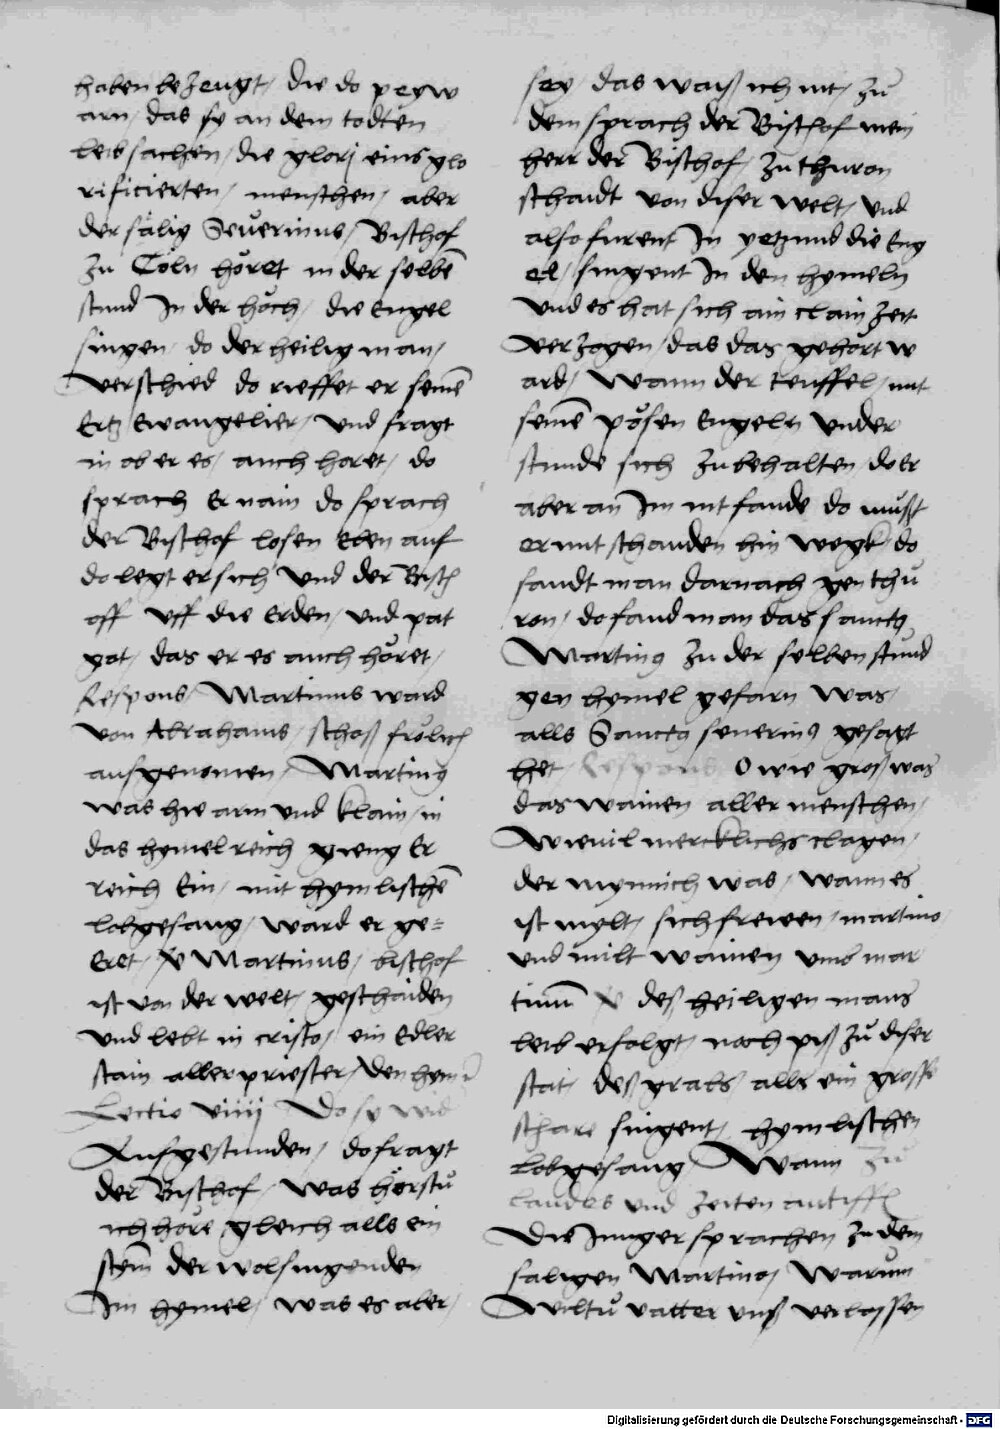 haben bezeugt / die do peyw
arn / das sy an dem todten
leib sachen / die glorj eins glo
rificierten / menschen / aber
der sälig Seuerinus / Bischof
zu Cöln höret in der selbē
stund In der höch / die Engel
singen / do der heilig man /
verschied do rieffet er seinē
Ertz Ewangelier / und fragt
in ob er es / auch horet / do
sprach Er nain do sprach
der Bischof losen Eben auf
do legt er sich und der Bisch
off uff die Erden / und pat
got / das er es auch höret /
Respons / Martinus ward
von Abrahams / schoß frölich
aufgenomen / Martinꝰ
was hie arm und klain / in
das hymelreich gieng Er
reich Ein / mit hymlischē
lobgesang / ward er ge=
Eret / ℣ Martinus / bischof
ist von der welt / geschaiden
und lebt in cristo / ein Edler
stain aller priester / den hym
Lectio viiij Do sy wid
Aufgestunden / do fragt
der Bischof / was hörstu
ich höre gleich alls ein
stym̄ der wolsingenden
Im hymel / was es aber /
sey / das waiß ich nit / zu
dem sprach der Bischof mein
herr der Bischof / zu thuron
schaidt von diser welt / und
also furent In yetzund die Eng
el / singent In den hymeln
und es hat sich ain clain zeit
verzogen / das das gehört w
ard / wann der teuffel / mit
seinē pösen Engeln under
stunde sich zu behalten / do Er
aber an Im nit fande do mußt
er mit schanden hin wegk / do
sandt man darnach gen thu
ron / do fand man das sanctꝰ
Martinꝰ zu der selben stund
gen hymel gefarn was /
alls Sanctꝰ seuerinꝰ gesagt
het / Respons O wie groß was
das wainen aller menschen /
Wieuil mercklichs clagen /
der mynnich was / wann es
ist mylt / sich frewen / martino
und milt wainen umb mar
tinū ℣ deß heiligen mans
leib erfolgt / noch piß zu diser
stat / deß grabs / alls ein grosse
schare singent / hymlischen
lobgesang / Wann zu
landes und zeiten antiffn
Die Junger sprachen zu dem
saligen Martino / Warum
Wiltu vatter unß verlassen
Digitalisierung gefördert durch die Deutsche Forschungsgemeinschaft - DFG